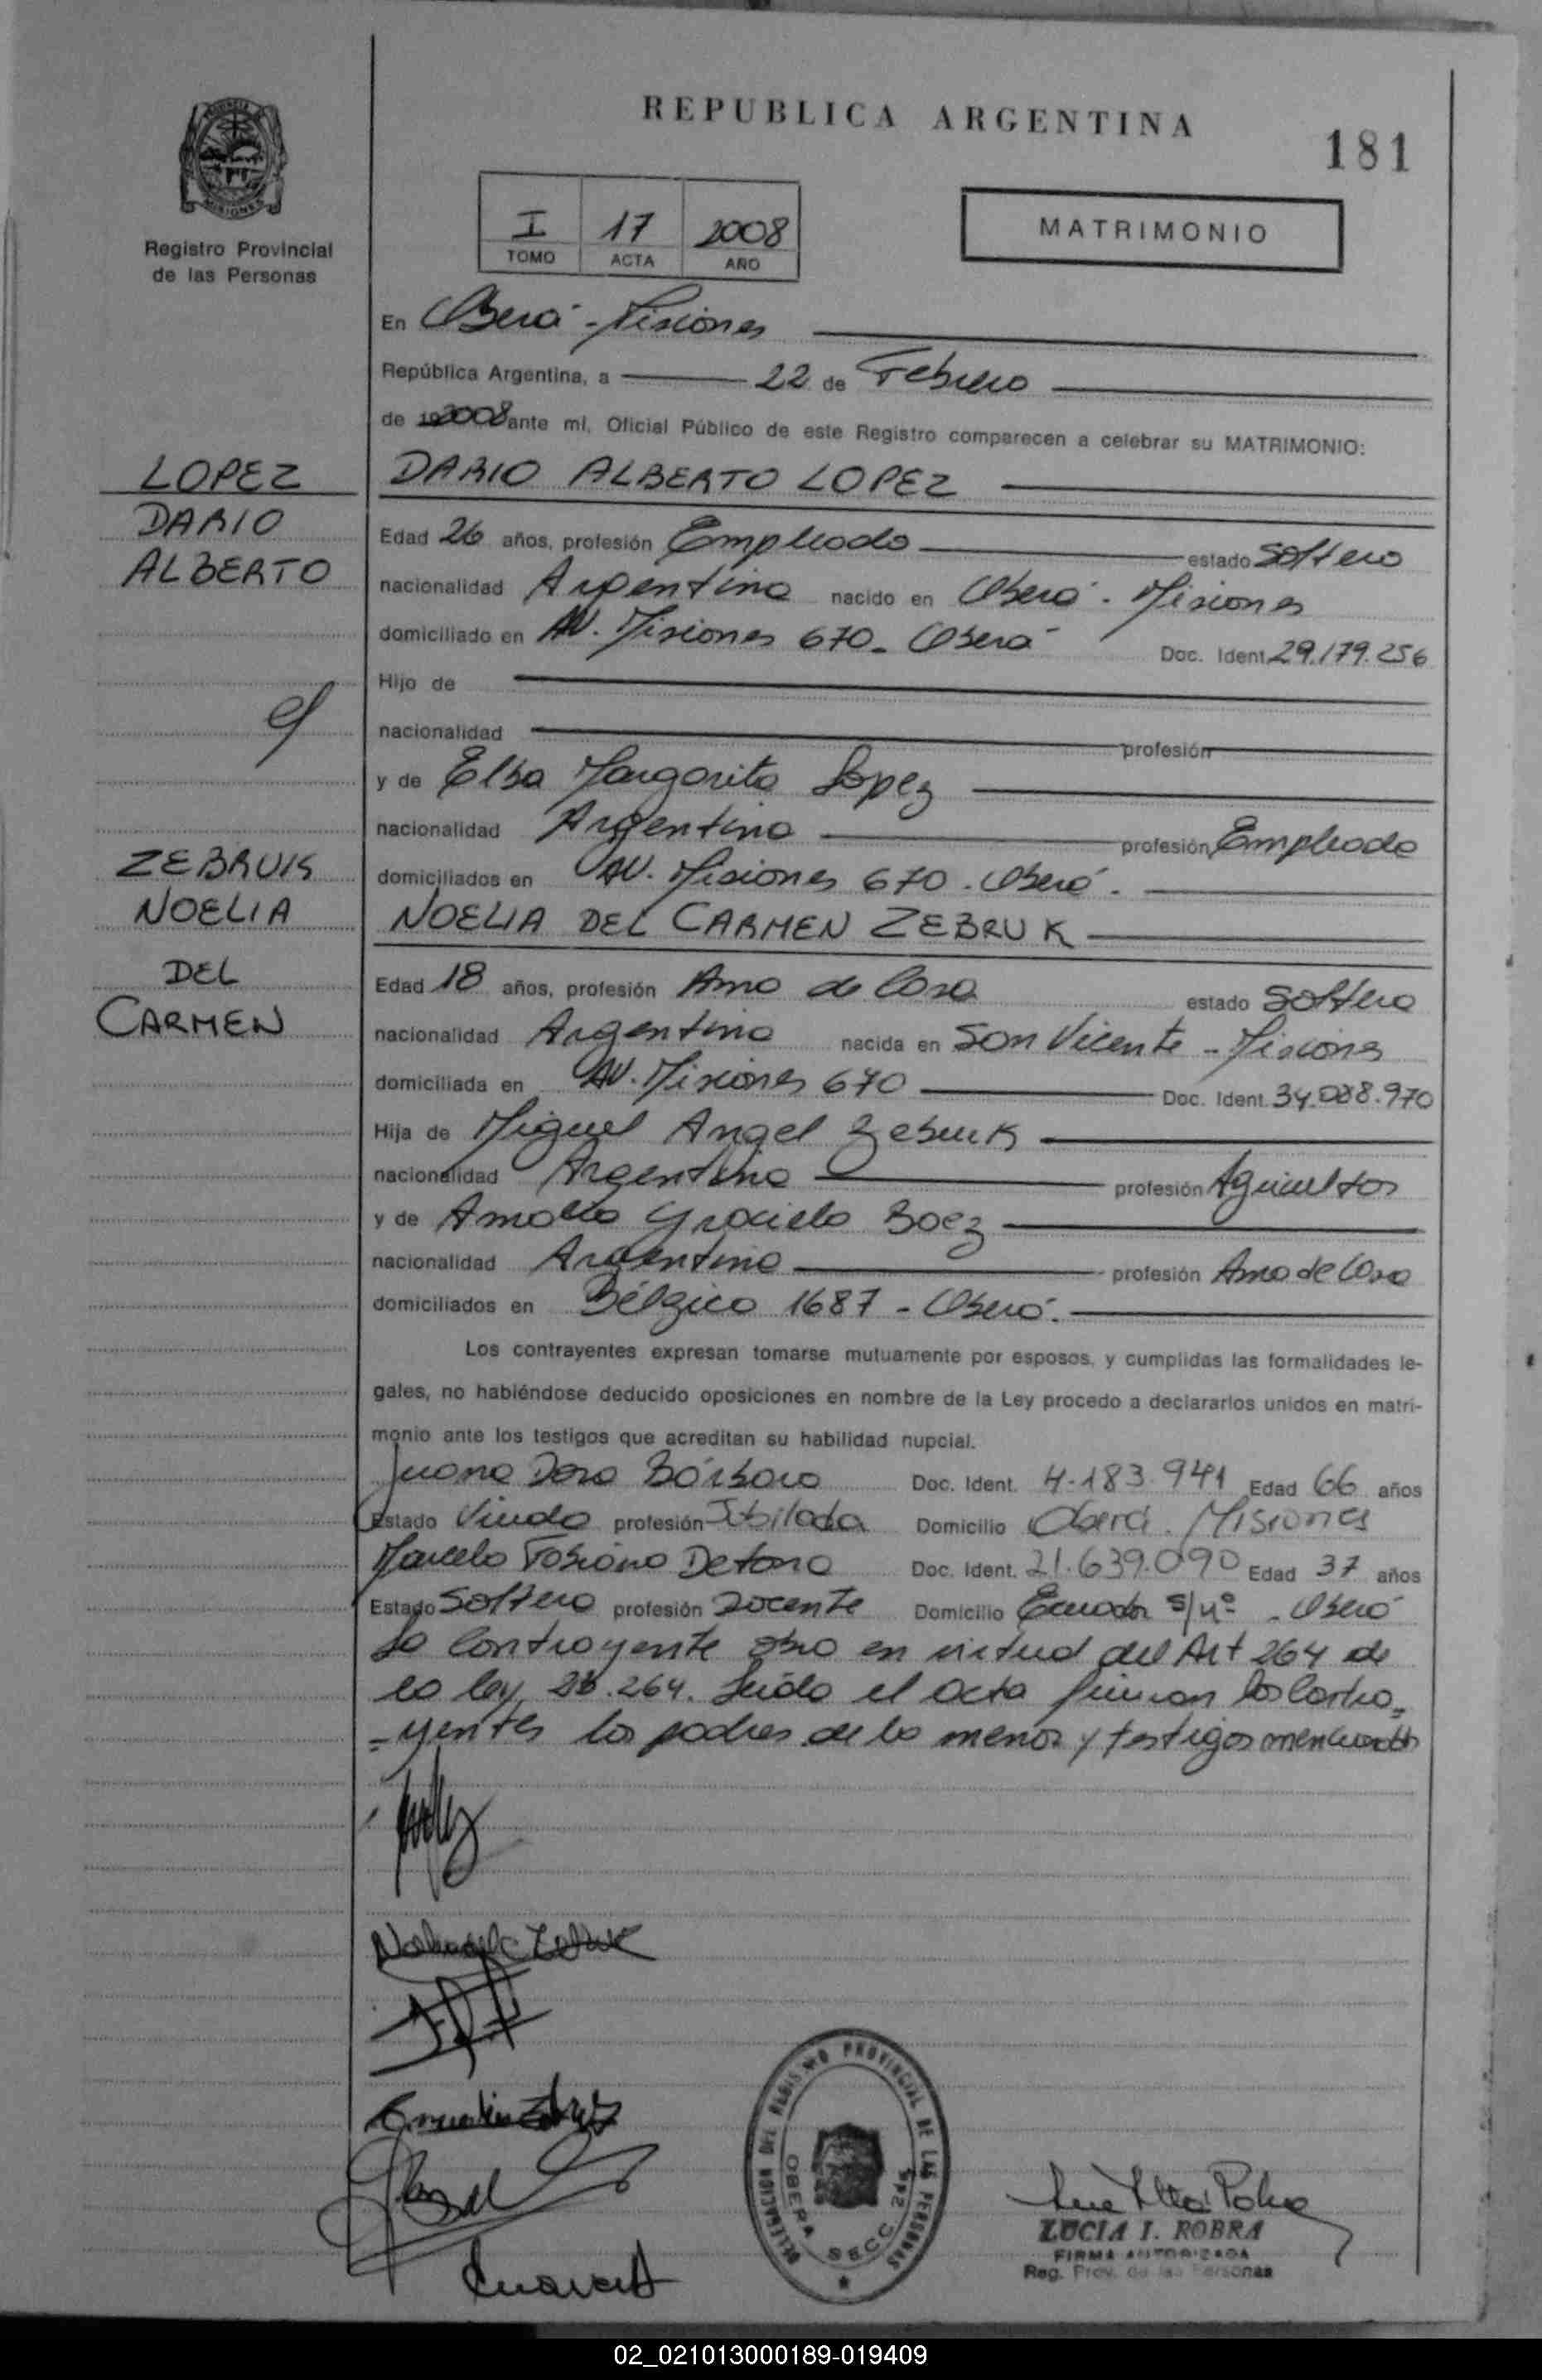 REPUBLICA ARGENTINA
181
Registro Provincial
de las Personas
I 17 2008
TOMO ACTA AÑO
MATRIMONIO
En Oberá - Misiones
República Argentina, a 22 de Febrero
de 192008 ante mi, Oficial Público de este Registro comparecen a celebrar su MATRIMONIO:
LOPEZ
DARIO
ALBERTO
DARIO ALBERTO LOPEZ
Edad 26 años, profesión Empleado estado Soltero
nacionalidad Argentina nacido en Oberá - Misiones
domiciliado en AV. Misiones 670 - Oberá Doc. Ident. 29.179.256
Hijo de
nacionalidad profesión
y de Elba Margarita Lopez
nacionalidad Argentina profesión Empleada
domiciliados en AV. Misiones 670 - Oberá.
ZEBRUK
NOELIA
DEL
CARMEN
NOELIA DEL CARMEN ZEBRUK
Edad 18 años, profesión Ama de Casa estado Soltera
nacionalidad Argentina nacida en San Vicente - Misiones
domiciliada en AV. Misiones 670 Doc. Ident. 34.008.970
Hija de Miguel Angel Zebruk
nacionalidad Argentina profesión Agricultor
y de Graciela Baez
nacionalidad Argentina profesión Ama de Casa
domiciliados en Bélgica 1687 - Oberá.
Los contrayentes expresan tomarse mutuamente por esposos, y cumplidas las formalidades le-
gales, no habiéndose deducido oposiciones en nombre de la Ley procedo a declararlos unidos en matri-
monio ante los testigos que acreditan su habilidad nupcial.
Juana Dora Bárbaro Doc. Ident. 4.183.941 Edad 66 años
Estado Viuda profesión Jubilada Domicilio Oberá. Misiones
Marcelo Fabiano Detona Doc. Ident. 21.639.090 Edad 37 años
Estado Soltero profesión Docente Domicilio Ecuador s/nº - Oberá
La Contrayente obra en virtud del Art 264 de
la ley 23.264. Leída el acta firman los Contra=
=yentes los padres de la menor y testigos mencionados
DELEGACION DEL REGISTRO PROVINCIAL DE LAS PERSONAS
OBERA SECC
LUCIA I. ROBRA
FIRMA AUTORIZADA
Reg. Prov. de las Personas
02_021013000189-019409